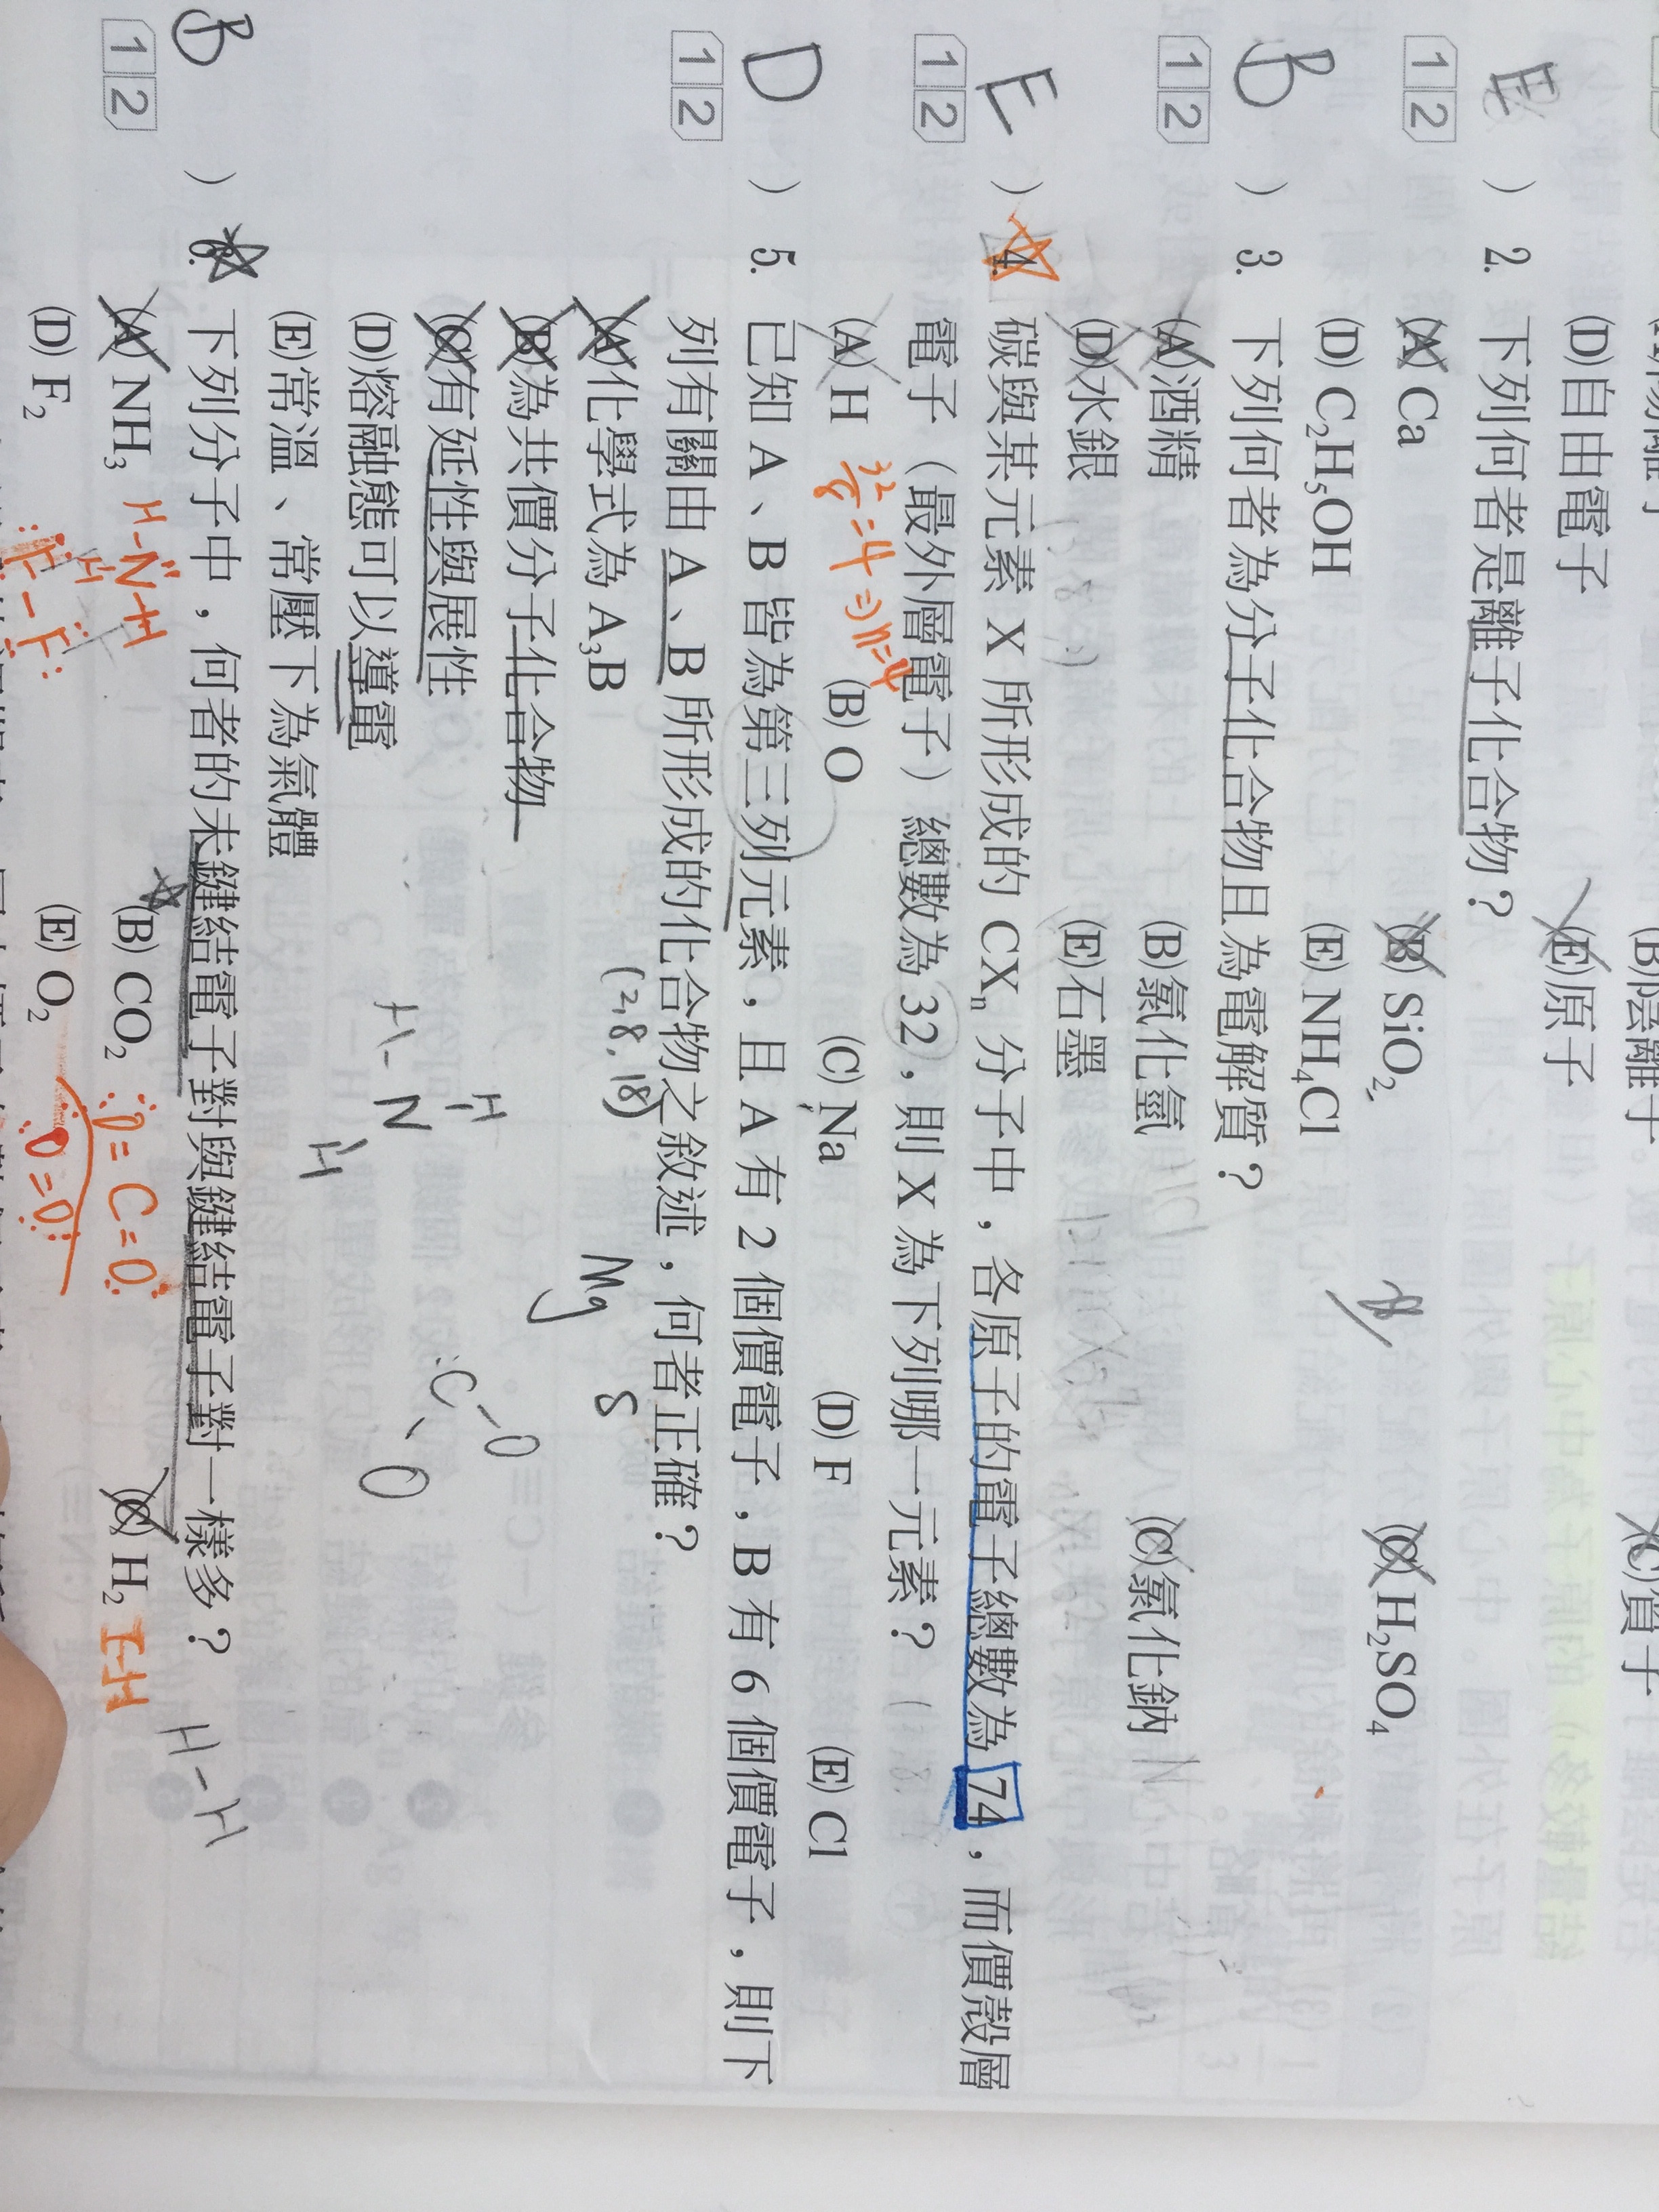 (D)自由電子 (E)原子
E ) 2. 下列何者是離子化合物?
1 2 (A) Ca (B) SiO₂ (C) H₂SO₄
(D) C₂H₅OH (E) NH₄Cl
B ) 3. 下列何者為分子化合物且為電解質?
1 2 (A)酒精 (B)氯化氫 (C)氯化鈉
(D)水銀 (E)石墨
E ) 4. 碳與某元素 X 所形成的 CXₙ 分子中,各原子的電子總數為 74,而價殼層
1 2 電子(最外層電子)總數為 32,則 X 為下列哪一元素?
(A) H (B) O (C) Na (D) F (E) Cl
32/8=4 ⇒ n=4
D ) 5. 已知 A、B 皆為第三列元素,且 A 有 2 個價電子,B 有 6 個價電子,則下
1 2 列有關由 A、B 所形成的化合物之敘述,何者正確?
(A)化學式為 A₃B (2,8,18) Mg S
(B)為共價分子化合物
(C)有延性與展性
(D)熔融態可以導電
(E)常溫、常壓下為氣體
B ) 6. 下列分子中,何者的未鍵結電子對與鍵結電子對一樣多?
1 2 (A) NH₃ (B) CO₂ (C) H₂ H-H
(D) F₂ (E) O₂